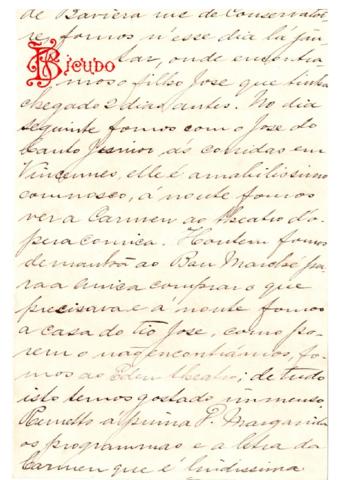 de Baviera rue de Conservatoi-
re, fomos n'esse dia lá jan-
Bicudo
tar, onde encontrá-
mos o filho José que tinha
chegado 2 dias antes. No dia
seguinte fomos com o José do
Canto Junior, ás corridas em
Vincennes, elle é amabilissimo
comnosco, á noute fomos
ver a Carmen ao theatro d'o-
pera comica. Hontem fomos
de manhã ao Bon Marché pa-
ra a Anica comprar o que
precisava e á noute fomos
a casa do tio José, como po-
rem o não encontrámos, fo-
mos ao Eden theatro; de tudo
isto temos gostado immenso
Remetto á prima P. Margarida
os programmas e a letra da
Carmen que é lindissima